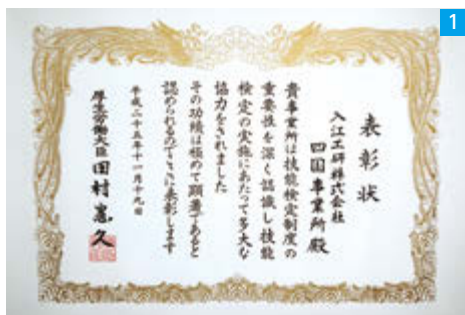 1
表彰状
入江工研株式会社
四国事業所殿
貴事業所は技能検定制度の
重要性を深く認識し技能
検定の実施にあたって多大な
協力をされました
その功績は極めて顕著であると
認められるのでここに表彰します
平成二十五年十一月十九日
厚生労働大臣 田村憲久